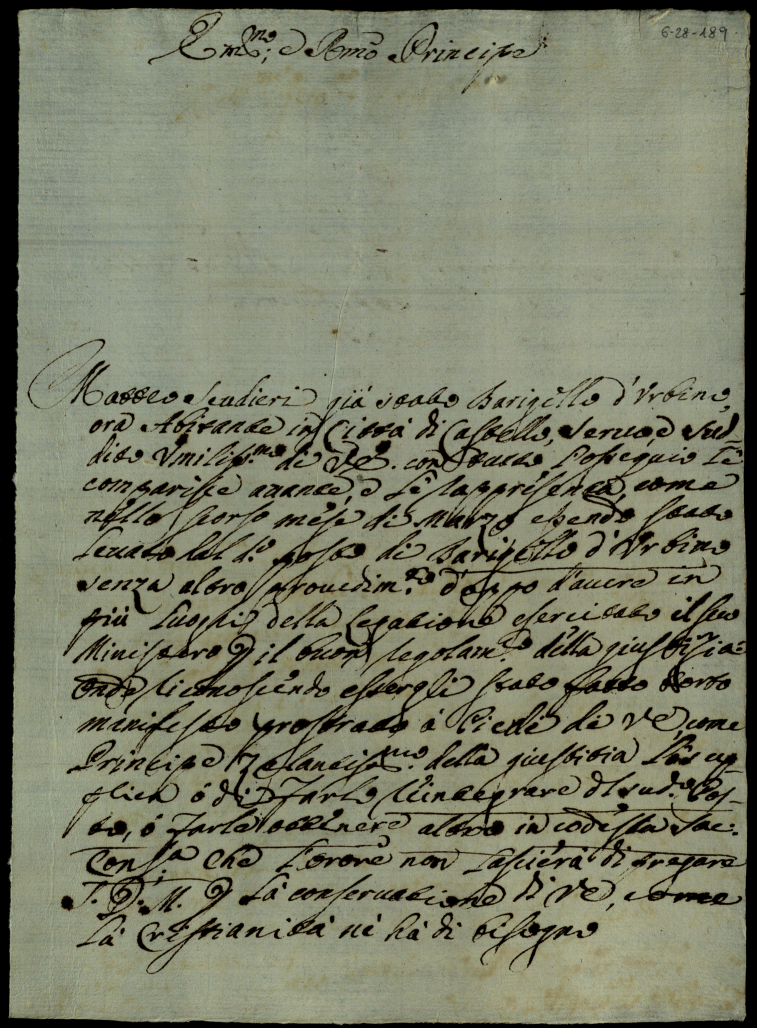 6-28-189
Em.mo; e Rmo Principe
Matteo Scudieri già stato Barigello d'Urbino,
ora Abitante in Città di Castello, servo, e sud-
dito Vmiliss.mo di VE. con tutto l'ossequio Le
comparisce avante, e Le rappresenta, come
nello scorso mese di Marzo essendo stato
levato dal d.o posto di Barigello d'Urbino
senza altro provedim.to d'oppo d'avere in
più Luoghi della Legatione esercitato il suo
Ministero p il buon regolam.to della giustizia:
Onde riconoscendo essergli stato fatto torto
manifesto prostrato à Piedi di VE, come
Principe Zelantiss.mo della giustitia La sup-
plica ó di Farlo reintegrare al sud.o Pos-
to, ó Farle ottenere altro in codesta Sac:
Cons.ta che l'Orore non lascierà di pregare
S. D. M. p La conservatione di VE, come
La Cristianità né hà di bisogno